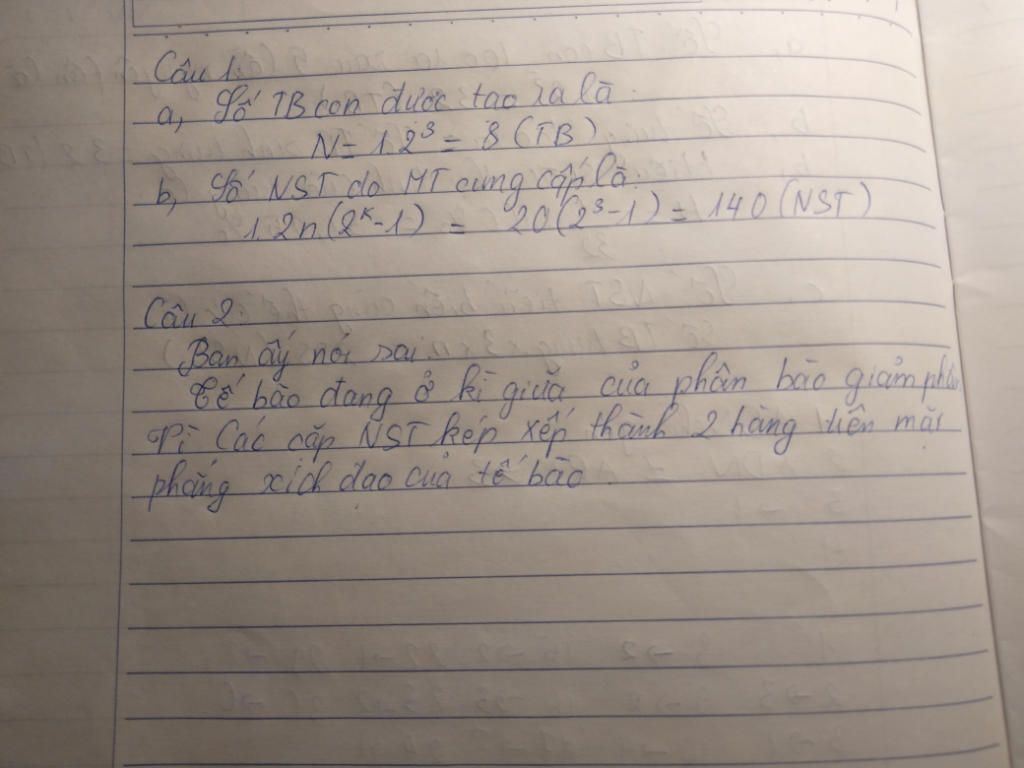 Câu 1:
a, Số TB con được tạo ra là:
N = 1.2³ = 8 (TB)
b, Số NST do MT cung cấp là:
1.2n(2ᵏ-1) = 20(2³-1) = 140 (NST)
Câu 2:
Bạn ấy nói sai.
Tế bào đang ở kì giữa của phân bào giảm phân
Vì các cặp NST kép xếp thành 2 hàng trên mặt
phẳng xích đạo của tế bào.